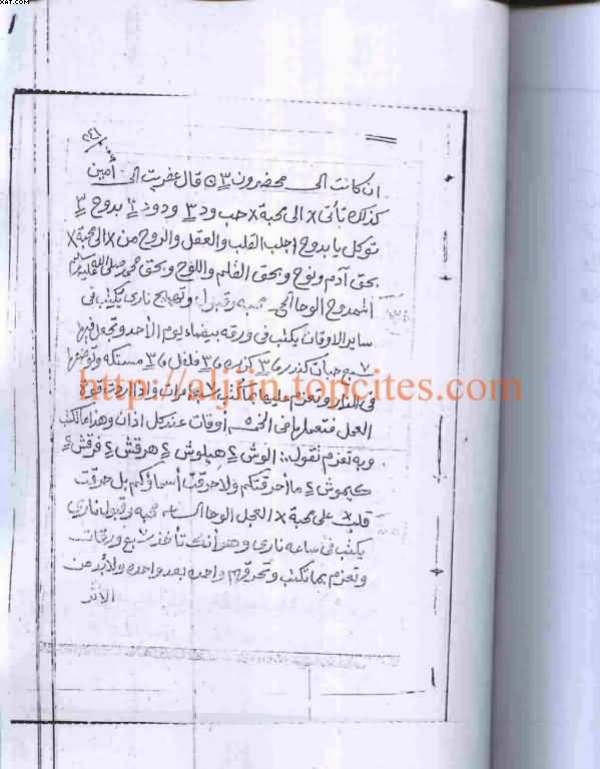 XAT.COM
٢٤٦
ان كانت الى محضرون ٣ قال عفريت الى أمين
كذلك تأتى x الى محبة x حب ود ٣ ودود ٣ بدوح ٣
توكل يا بدوح اجلب القلب والعقل والروح من x الى محبة x
بحق آدم ونوح وبحق القلم واللوح وبحق محمد صلى الله عليه وسلم
الوحا محبه وقبول وتهييج نارى يكتب فى
ساير الاوقات يكتب فى ورقه بيضاء يوم الأحد وتجعل فيها
٧ حبات كندر ٣ كزبره ٣ فلفل ٣ مستكه وتوضعها
فى النار وتعزم عليها بما تكتب مرات واذا اردت قوة
العمل فتعملها فى الخمس أوقات عند كل اذان وهذا ما تكتب
وبه تعزم تقول الوش ٤ هيلوش ٤ هرقش ٤ فرقش ٤
كموش ٤ ما احرقتكم ولا حرقت أسماؤكم بل حرقت
قلب x على محبة x العجل الوحا الساعه محبه وقبول نارى
يكتب فى ساعه نارى وهو أنك تأخذ سبع ورقات
وتعزم بما تكتب وتحرقهم واحده بعد واحده ولابد من
الأثر
http://aljjin.topcites.com